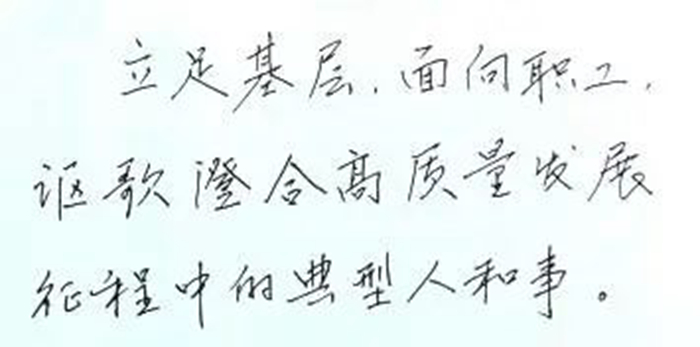 立足基层,面向职工,
讴歌澄合高质量发展
征程中的典型人和事。